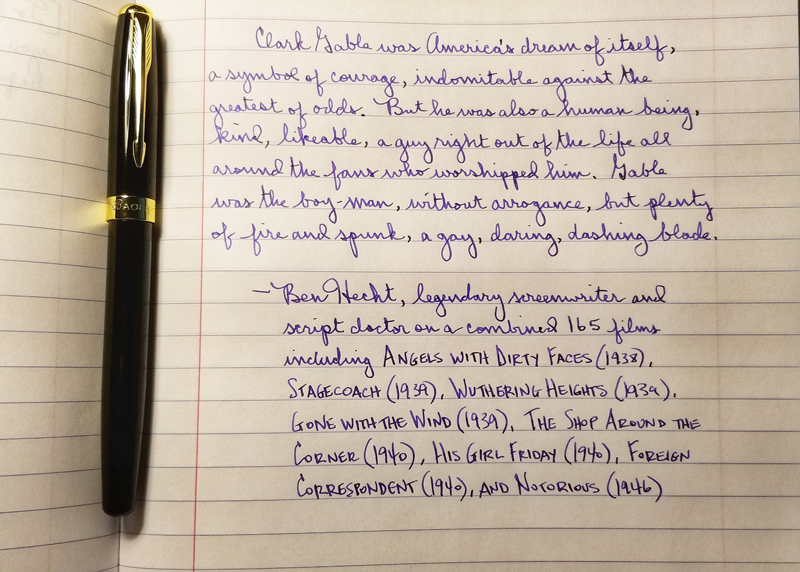 Clark Gable was America's dream of itself,
a symbol of courage, indomitable against the
greatest of odds. But he was also a human being,
kind, likeable, a guy right out of the life all
around the fans who worshipped him. Gable
was the boy-man, without arrogance, but plenty
of fire and spunk, a gay, daring, dashing blade.
— Ben Hecht, legendary screenwriter and
script doctor on a combined 165 films
including ANGELS WITH DIRTY FACES (1938),
STAGECOACH (1939), WUTHERING HEIGHTS (1939),
GONE WITH THE WIND (1939), THE SHOP AROUND THE
CORNER (1940), HIS GIRL FRIDAY (1940), FOREIGN
CORRESPONDENT (1940), AND NOTORIOUS (1946)